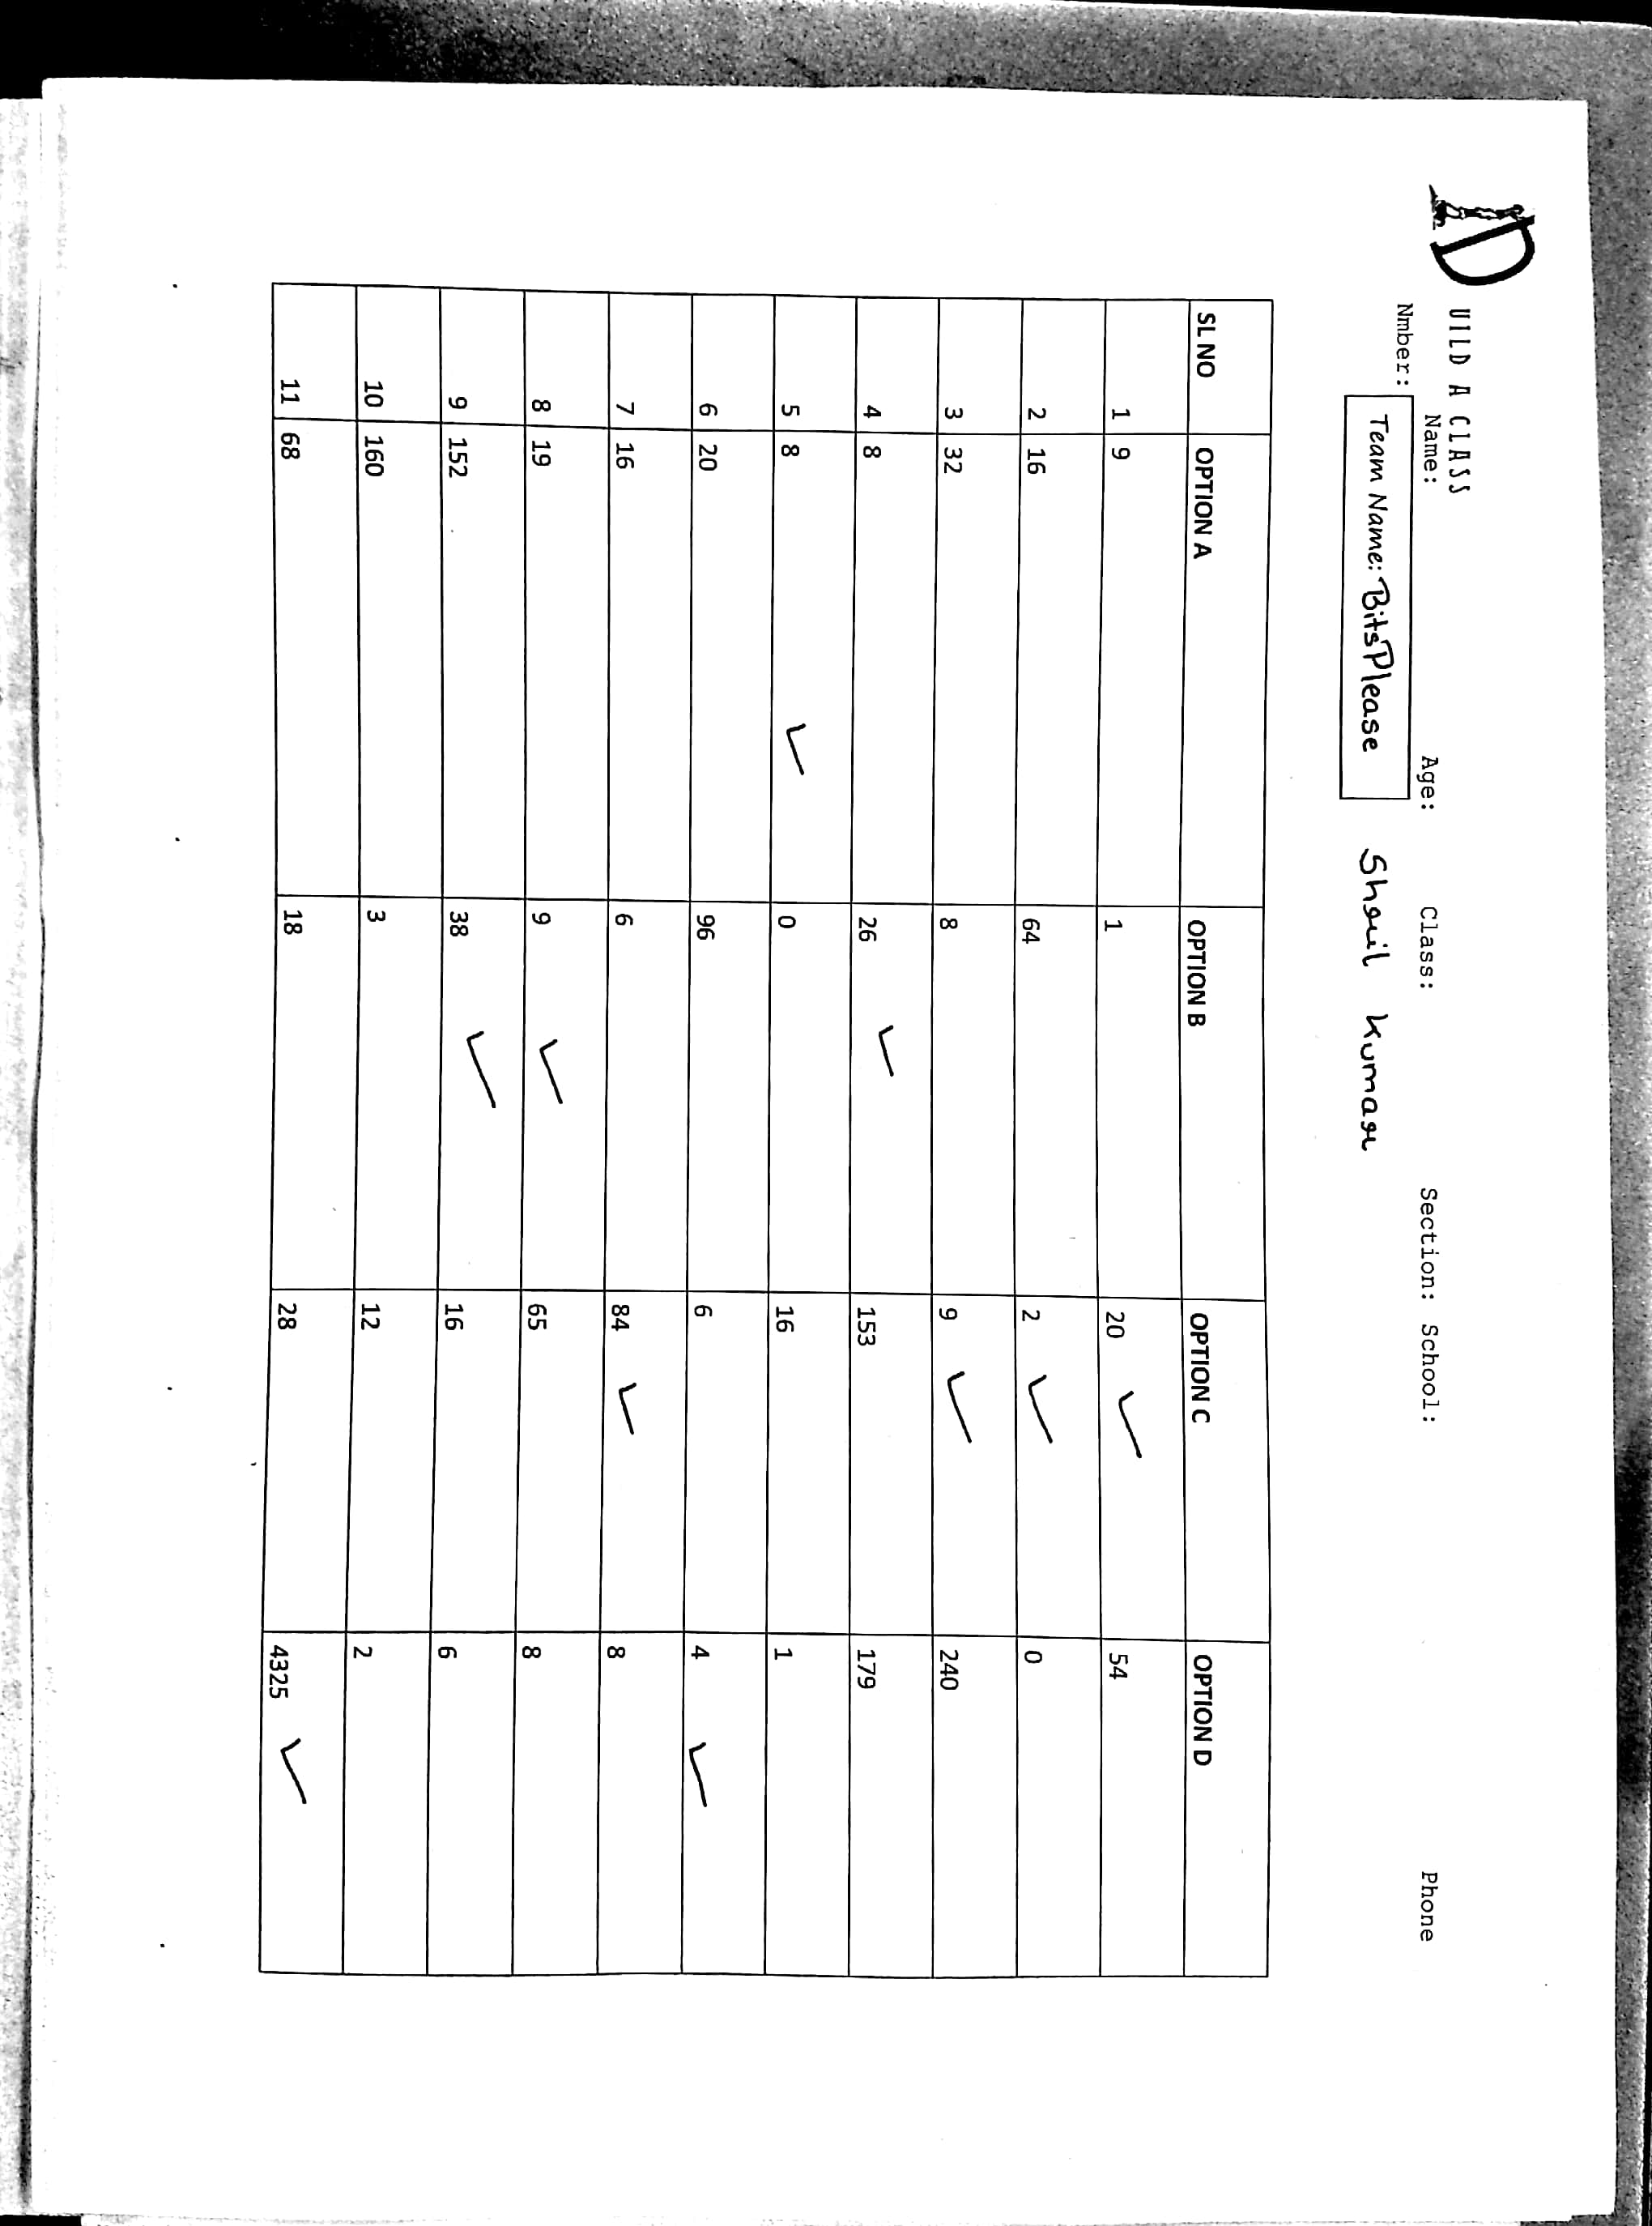 D UILD A CLASS
Name: Age: Class: Section: School: Phone
Nmber:
Team Name: BitsPlease Shril Kumar
SL NO OPTION A OPTION B OPTION C OPTION D
1 9 1 20 ✓ 54
2 16 64 2 ✓ 0
3 32 8 9 ✓ 240
4 8 26 ✓ 153 179
5 8 ✓ 0 16 1
6 20 96 6 4 ✓
7 16 6 84 ✓ 8
8 19 9 ✓ 65 8
9 152 38 ✓ 16 6
10 160 3 12 2
11 68 18 28 4325 ✓